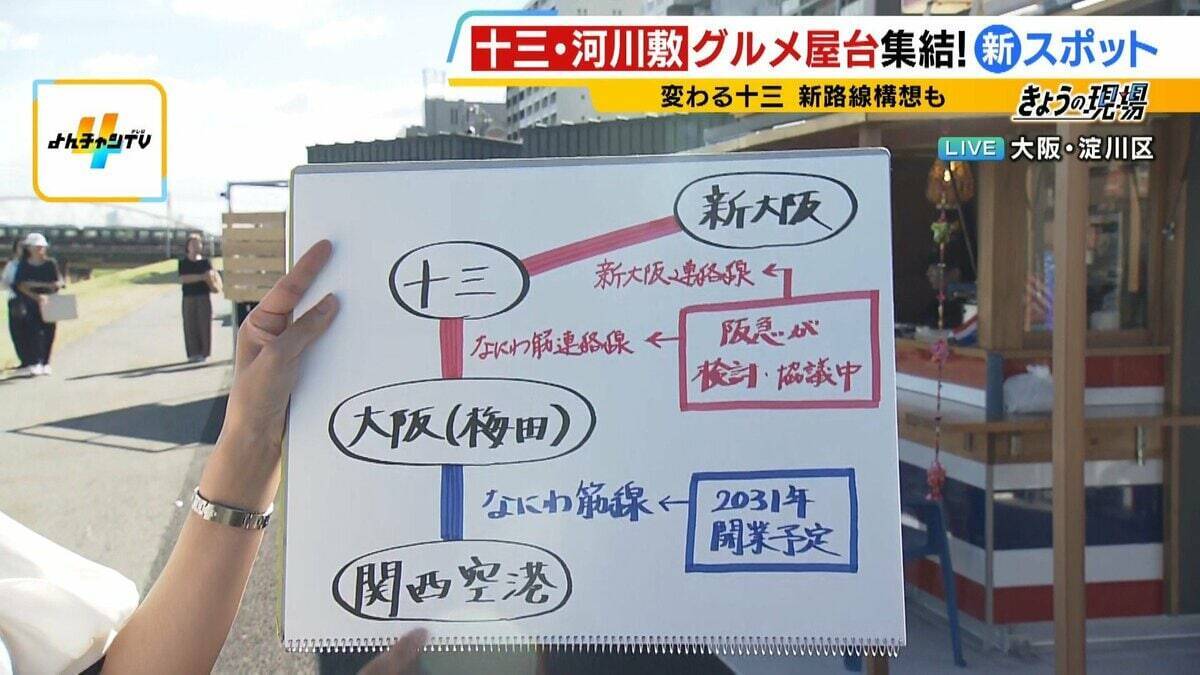 十三・河川敷グルメ屋台集結!新スポット
変わる十三 新路線構想も
きょうの現場
よんチャンTV
テレビ
4
LIVE 大阪・淀川区
新大阪
十三
新大阪連絡線
なにわ筋連絡線
阪急が
検討・協議中
大阪(梅田)
なにわ筋線
2031年
開業予定
関西空港